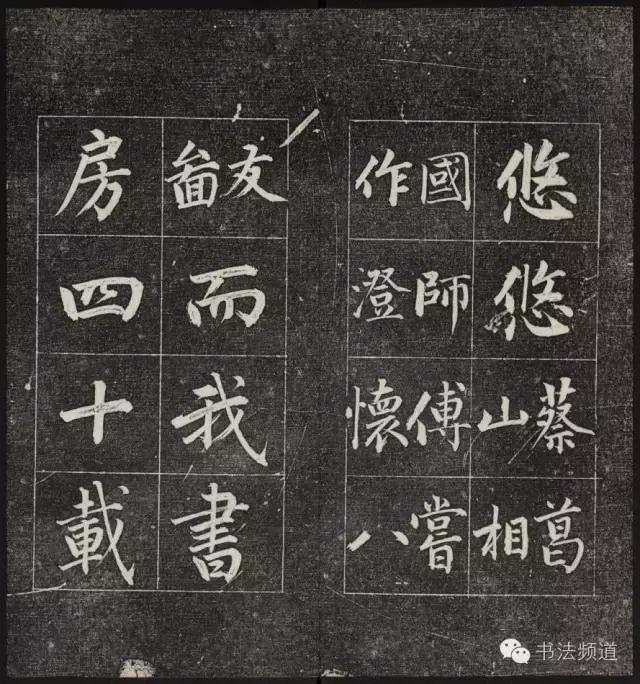 悠悠蔡葛山相
國師傅嘗作澄懷八
友圖而我書
房四十載
书法频道